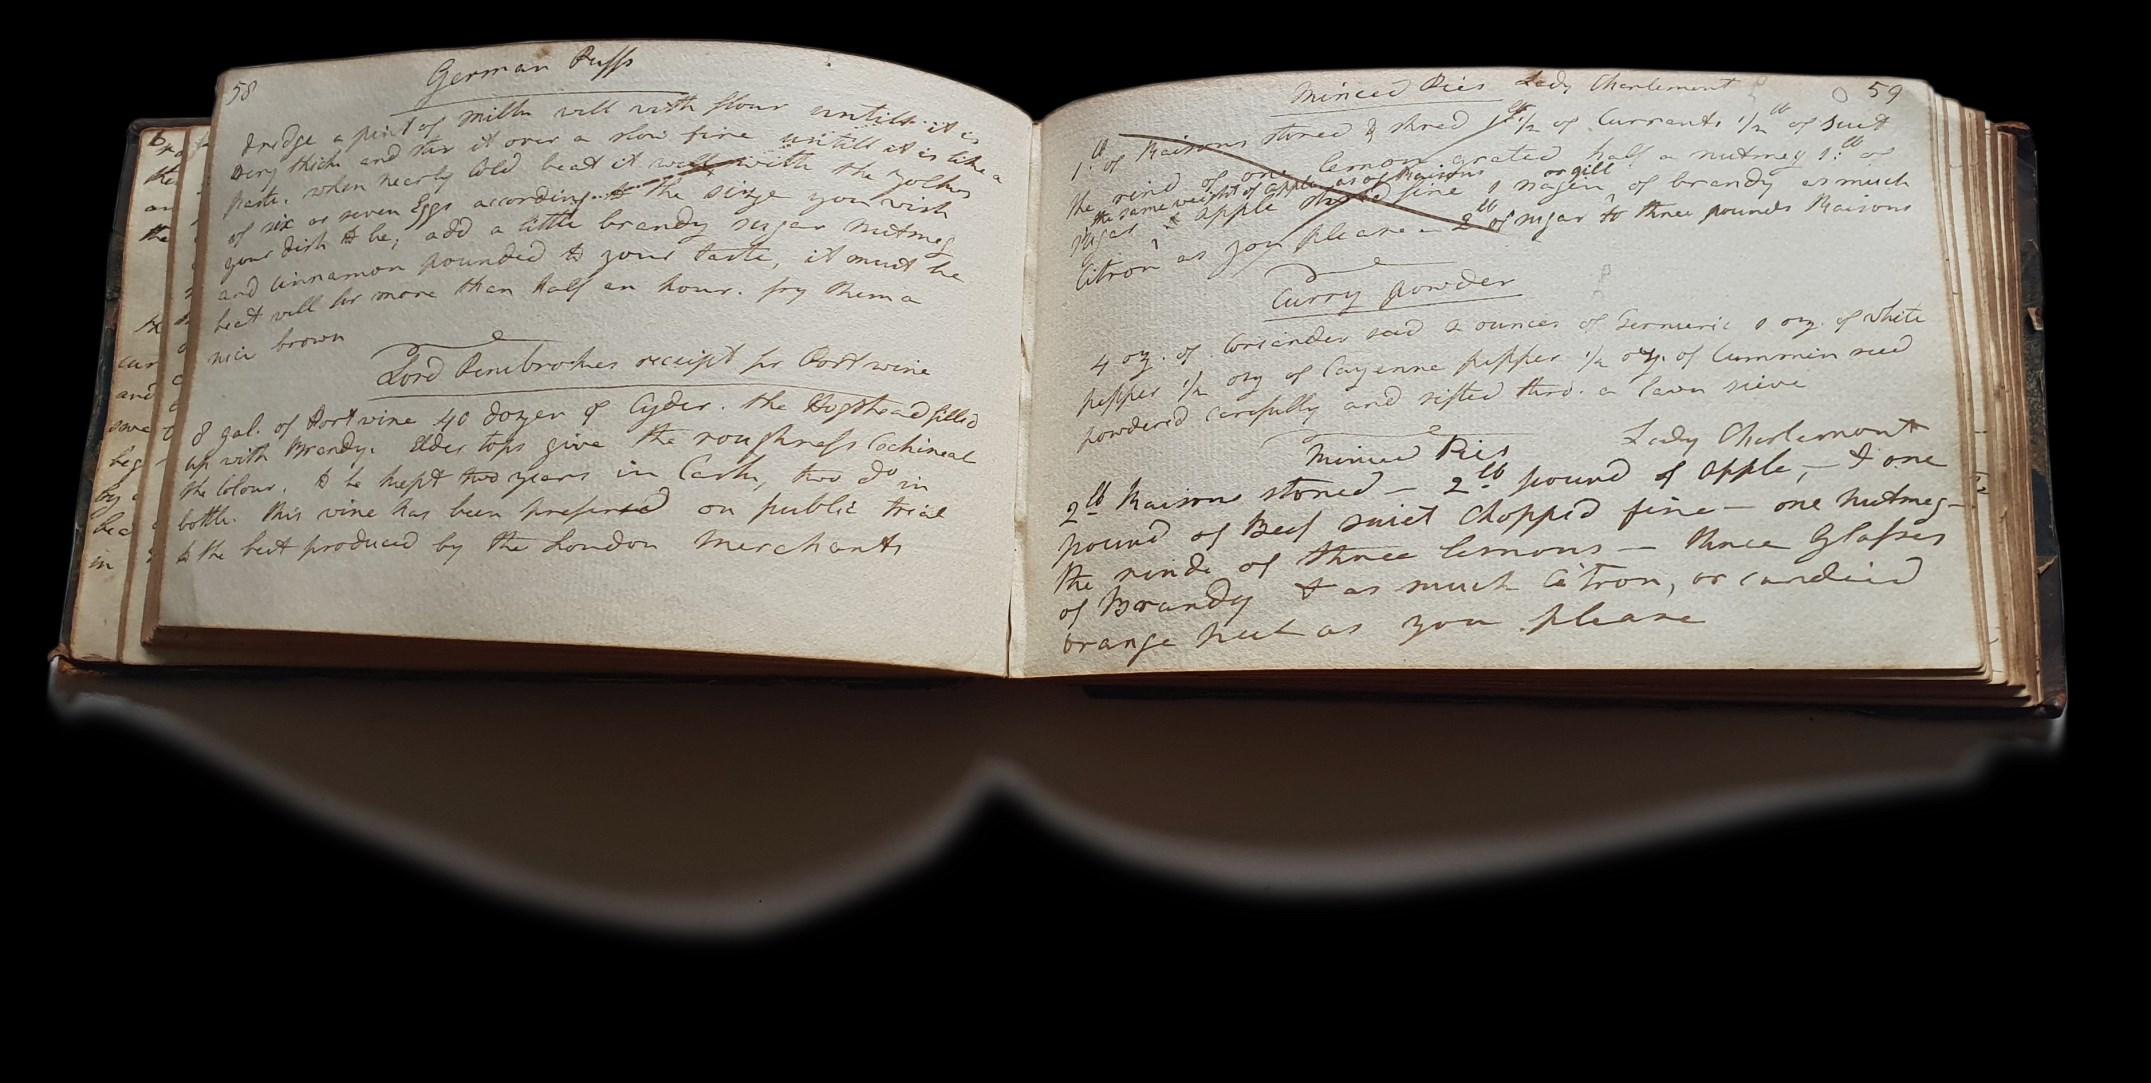 58
German Puffs
dridge a pint of Milk well with flour untill it is
very thick and stir it over a slow fire untill it is like a
Paste. when nearly Cold beat it well with the yolks
of six or seven Eggs according to the size you wish
your dish to be; add a little brandy sugar Nutmeg
and Cinnamon pounded to your taste, it must be
beat well for more than half an hour. fry them a
nice brown
Lord Pembrokes receipt for Port wine
8 gal. of Port wine 40 dozen of Cyder. the Hogshead filled
up with Brandy. Elder tops give the roughness Cochineal
the Colour. to be kept two years in Cask, two do in
bottle. this wine has been prefered on public trial
to the best produced by the London Merchants
59
Minced Pies Lady Charlemont
1.lb of Raisons stoned & shred 1lb 1/2 of Currants 1/2 lb of Suet
the rind of one lemon grated half a nutmeg 1.lb of
the same weight of apples as of Raisons or gill
sugar apple shred fine 1 nagen of brandy as much
Citron as you please - 2lb of sugar to three pounds Raisons
Curry powder
4 oz. of Coriander seed 2 ounces of Turmeric 1 oz. of white
pepper 1/2 oz of Cayenne pepper 1/2 oz. of Cummin seed
powdered carefully and sifted thro. a lawn sieve
Minced Pies Lady Charlemont
2lb Raisons stoned - 2lb pound of Apple, - & one
pound of Beef suiet Chopped fine - one Nutmeg -
the rinds of three lemons - three Glasses
of Brandy & as much Citron, or candied
orange peel as you please